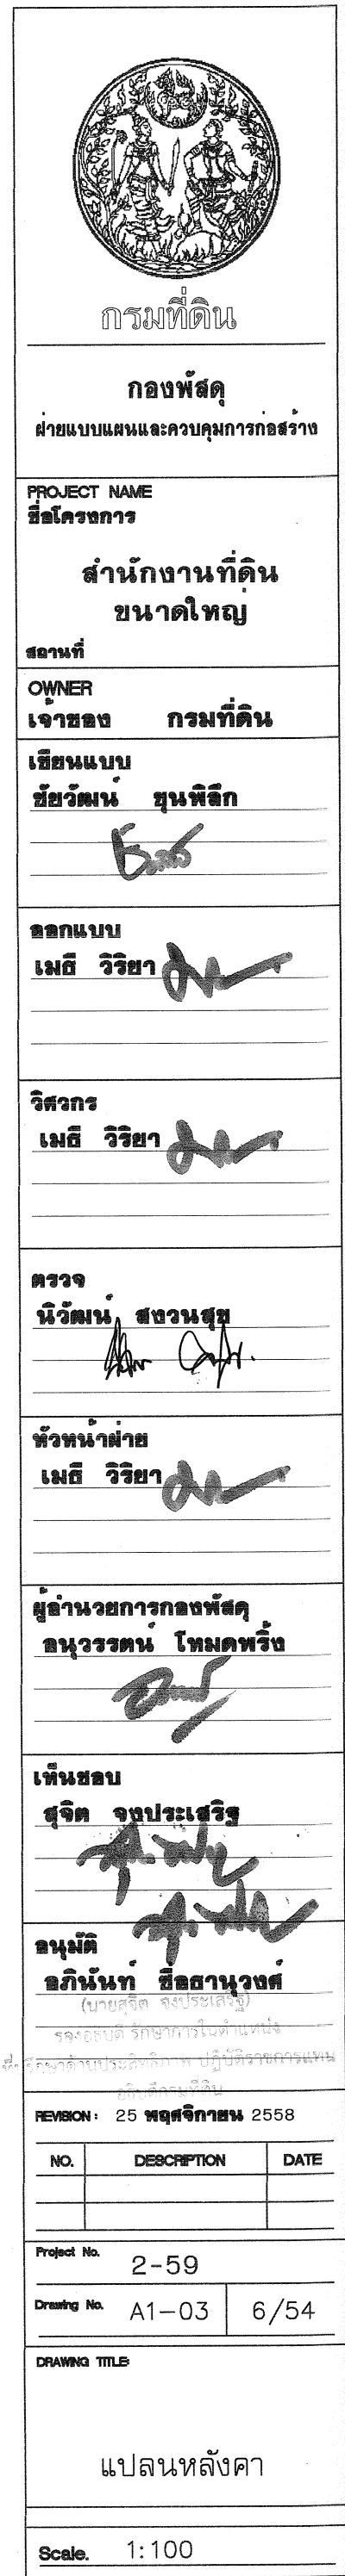 กรมที่ดิน
กองพัสดุ
ฝ่ายแบบแผนและควบคุมการก่อสร้าง
PROJECT NAME
ชื่อโครงการ
สำนักงานที่ดิน
ขนาดใหญ่
สถานที่
OWNER
เจ้าของ กรมที่ดิน
เขียนแบบ
ชัยวัฒน์ ขุนพิลึก
ออกแบบ
เมธี วิริยา
วิศวกร
เมธี วิริยา
ตรวจ
นิวัฒน์ สงวนสุข
หัวหน้าฝ่าย
เมธี วิริยา
ผู้อำนวยการกองพัสดุ
อนุวรรตน์ โหมดพริ้ง
เห็นชอบ
สุจิต จงประเสริฐ
อนุมัติ
อภินันท์ ซื่อธานุวงศ์
(นายสุจิต จงประเสริฐ)
รองอธิบดี รักษาการในตำแหน่ง
ที่ปรึกษาด้านประสิทธิภาพ ปฏิบัติราชการแทน
อธิบดีกรมที่ดิน
REVISION : 25 พฤศจิกายน 2558
NO. DESCRIPTION DATE
Project No. 2-59
Drawing No. A1-03 6/54
DRAWING TITLE:
แปลนหลังคา
Scale. 1:100